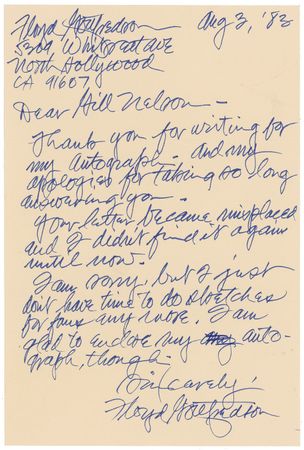 Floyd Gottfredson Aug 3, '83
5309 Whitsett Ave
North Hollywood
CA 91607
Dear Hill Nelson -
Thank you for writing for
my autograph - and my
apologies for taking so long
answering you -
Your letter became misplaced
and I didn't find it again
until now.
I am sorry, but I just
don't have time to do sketches
for fans any more. I am
glad to enclose my auto-
graph, though -
Sincerely,
Floyd Gottfredson